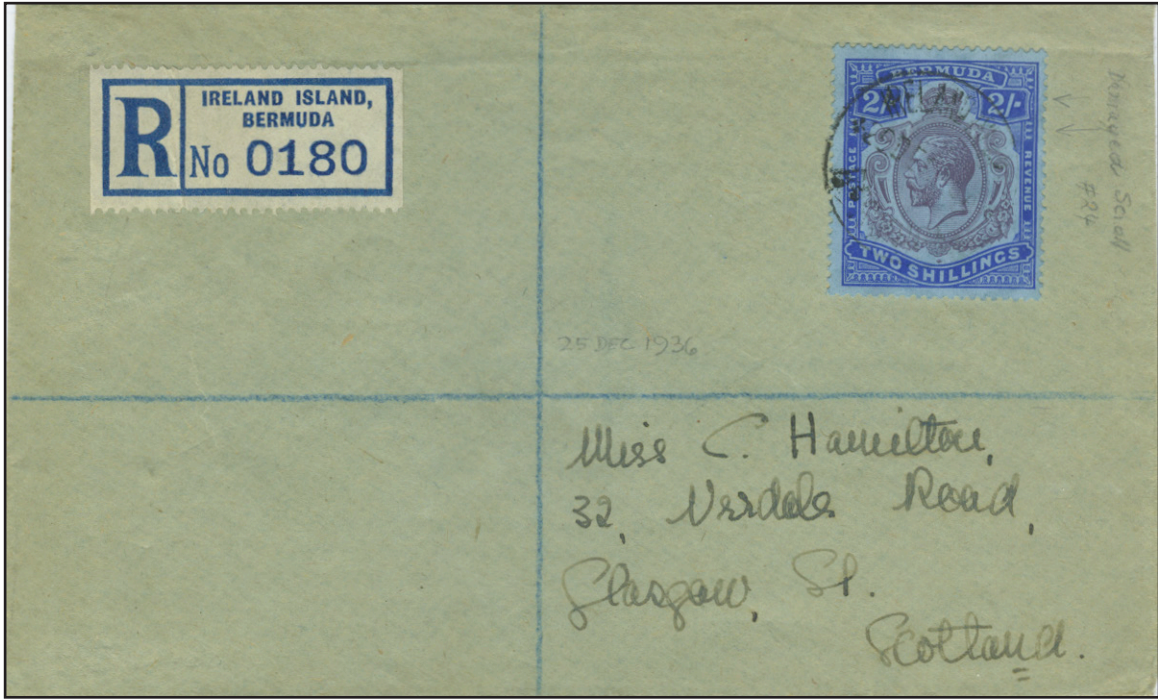 IRELAND ISLAND,
BERMUDA
R No 0180
BERMUDA
2/- 2/-
POSTAGE
REVENUE
TWO SHILLINGS
Damaged Scroll
#24
25 DEC 1936
Miss C. Hamilton,
32, Road,
Glasgow, S1.
Scotland.